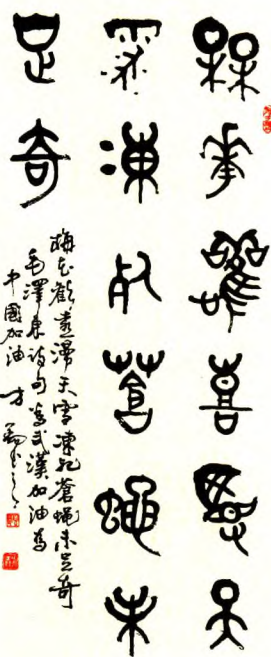 槑華歡喜漫天
雪凍死蒼蠅未
足奇
梅花歡喜漫天雪凍死蒼蠅未足奇
毛澤東詩句寫武漢加油為
中國加油 方